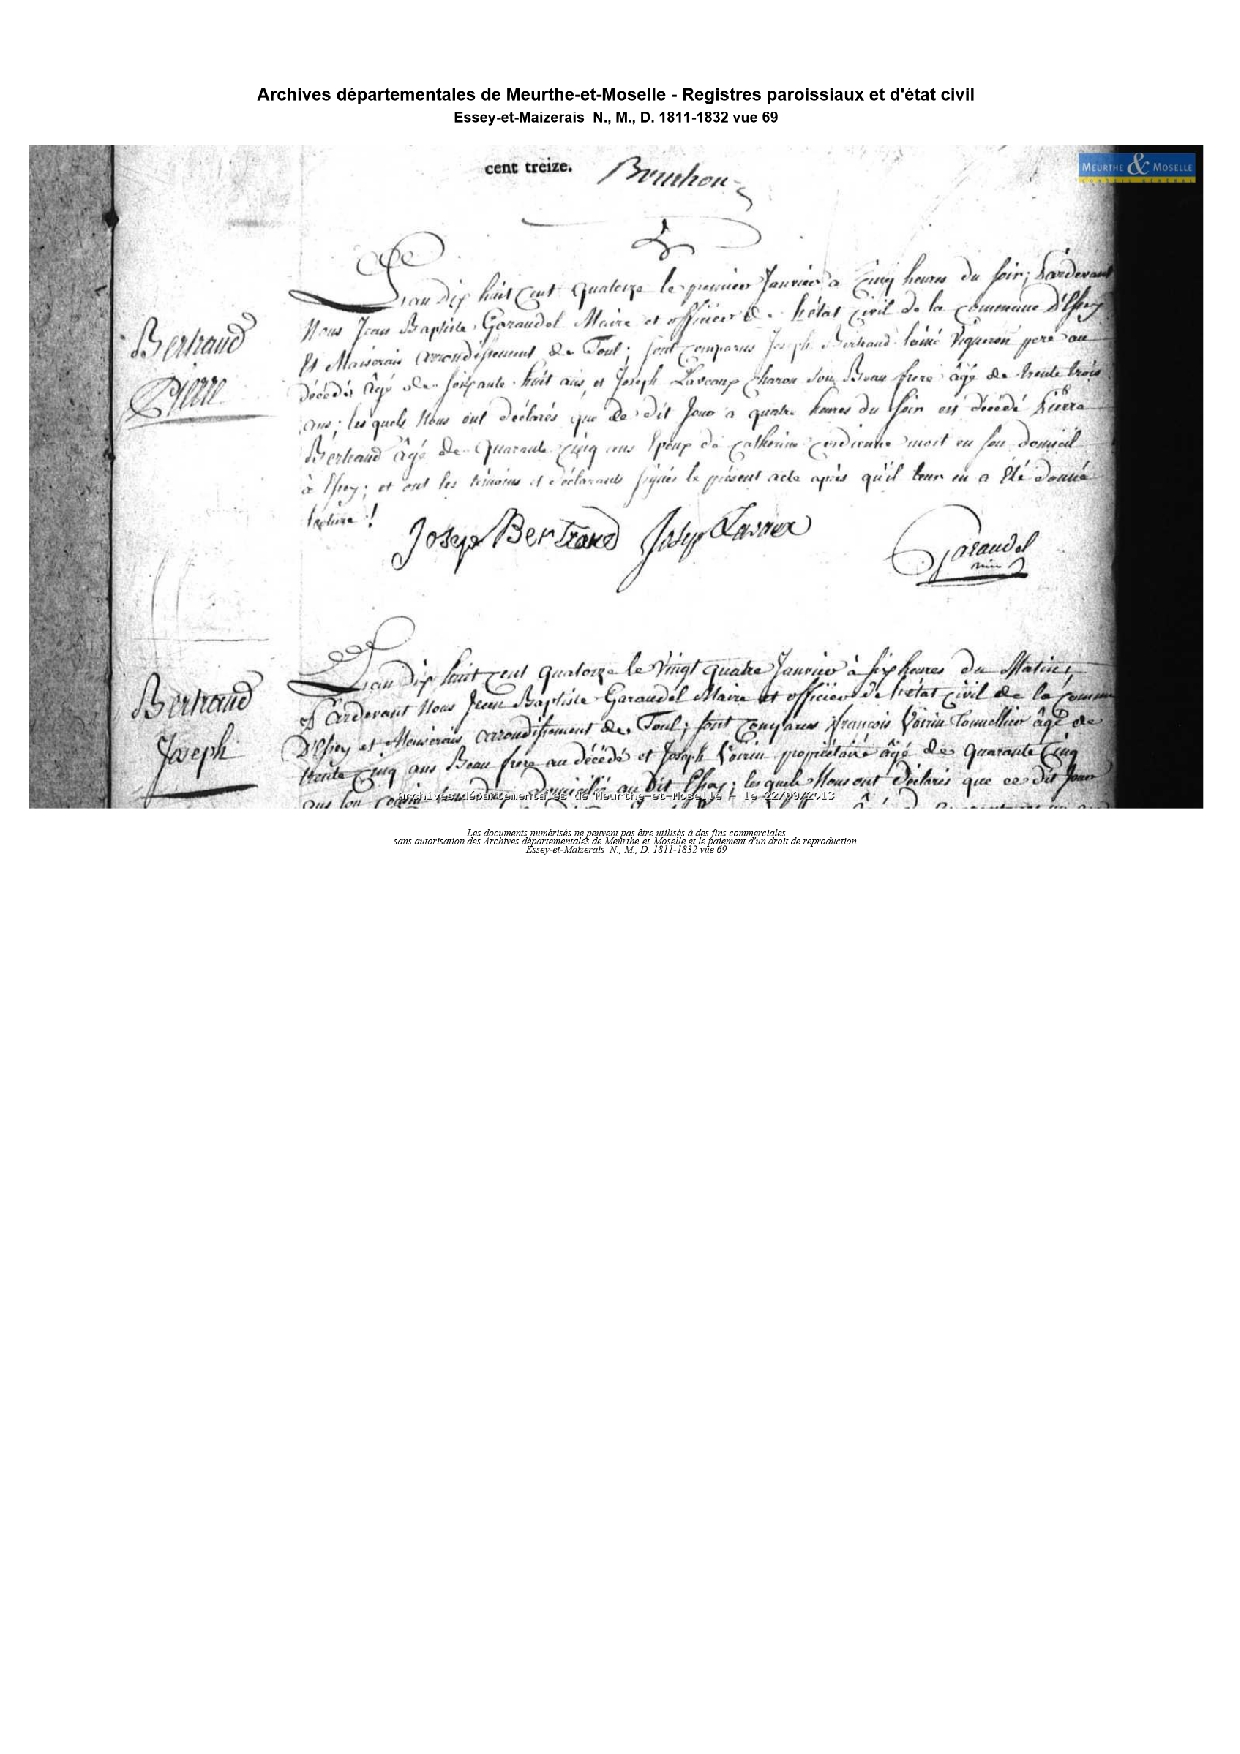 Archives départementales de Meurthe-et-Moselle - Registres paroissiaux et d'état civil
Essey-et-Maizerais N., M., D. 1811-1832 vue 69
cent treize.
MEURTHE & MOSELLE
CONSEIL GENERAL
L'an dix huit cent quatorze le premier Janvier a cinq heures du soir; Pardevant
Nous Jean Baptiste Garaudel Maire et officier de l'état civil de la commune D'Essey
Bertrand
Pierre
Et Maiserais arrondissement de Toul; sont comparus Joseph Bertrand l'ainé Vigneron pere au
décédé âgé de soixante huit ans, et Joseph charon son Beau frere âgé de trente trois
ans; lesquels Nous ont déclarés que ce dit Jour a quatre heures du soir est décédé Pierre
Bertrand âgé de Quarante cinq ans Epoux de Catherine mort en son domicil
à Essey; et ont les témoins et déclarants signés le présent acte après qu'il leur en a été donné
lecture !
Joseph Bertrand Joseph
Garaudel
L'an dix huit cent quatorze le Vingt quatre Janvier à six heures du Matin;
Pardevant Nous Jean Baptiste Garaudel Maire et officier de l'état civil de la commune
Bertrand
Joseph
D'Essey et Maiserais arrondissement de Toul; sont comparus François Voirin Tonnellier âgé de
trente cinq ans Beau frere au décédé et Joseph Voirin propriétaire âgé de quarante cinq
ans son domicilé au Dit Essey; lesquels Nous ont déclarés que ce dit Jour
Archives départementales de Meurthe-et-Moselle - le 22/09/2013
Les documents numérisés ne peuvent pas être utilisés à des fins commerciales
sans autorisation des Archives départementales de Meurthe et Moselle et le paiement d'un droit de reproduction
Essey-et-Maizerais N., M., D. 1811-1832 vue 69